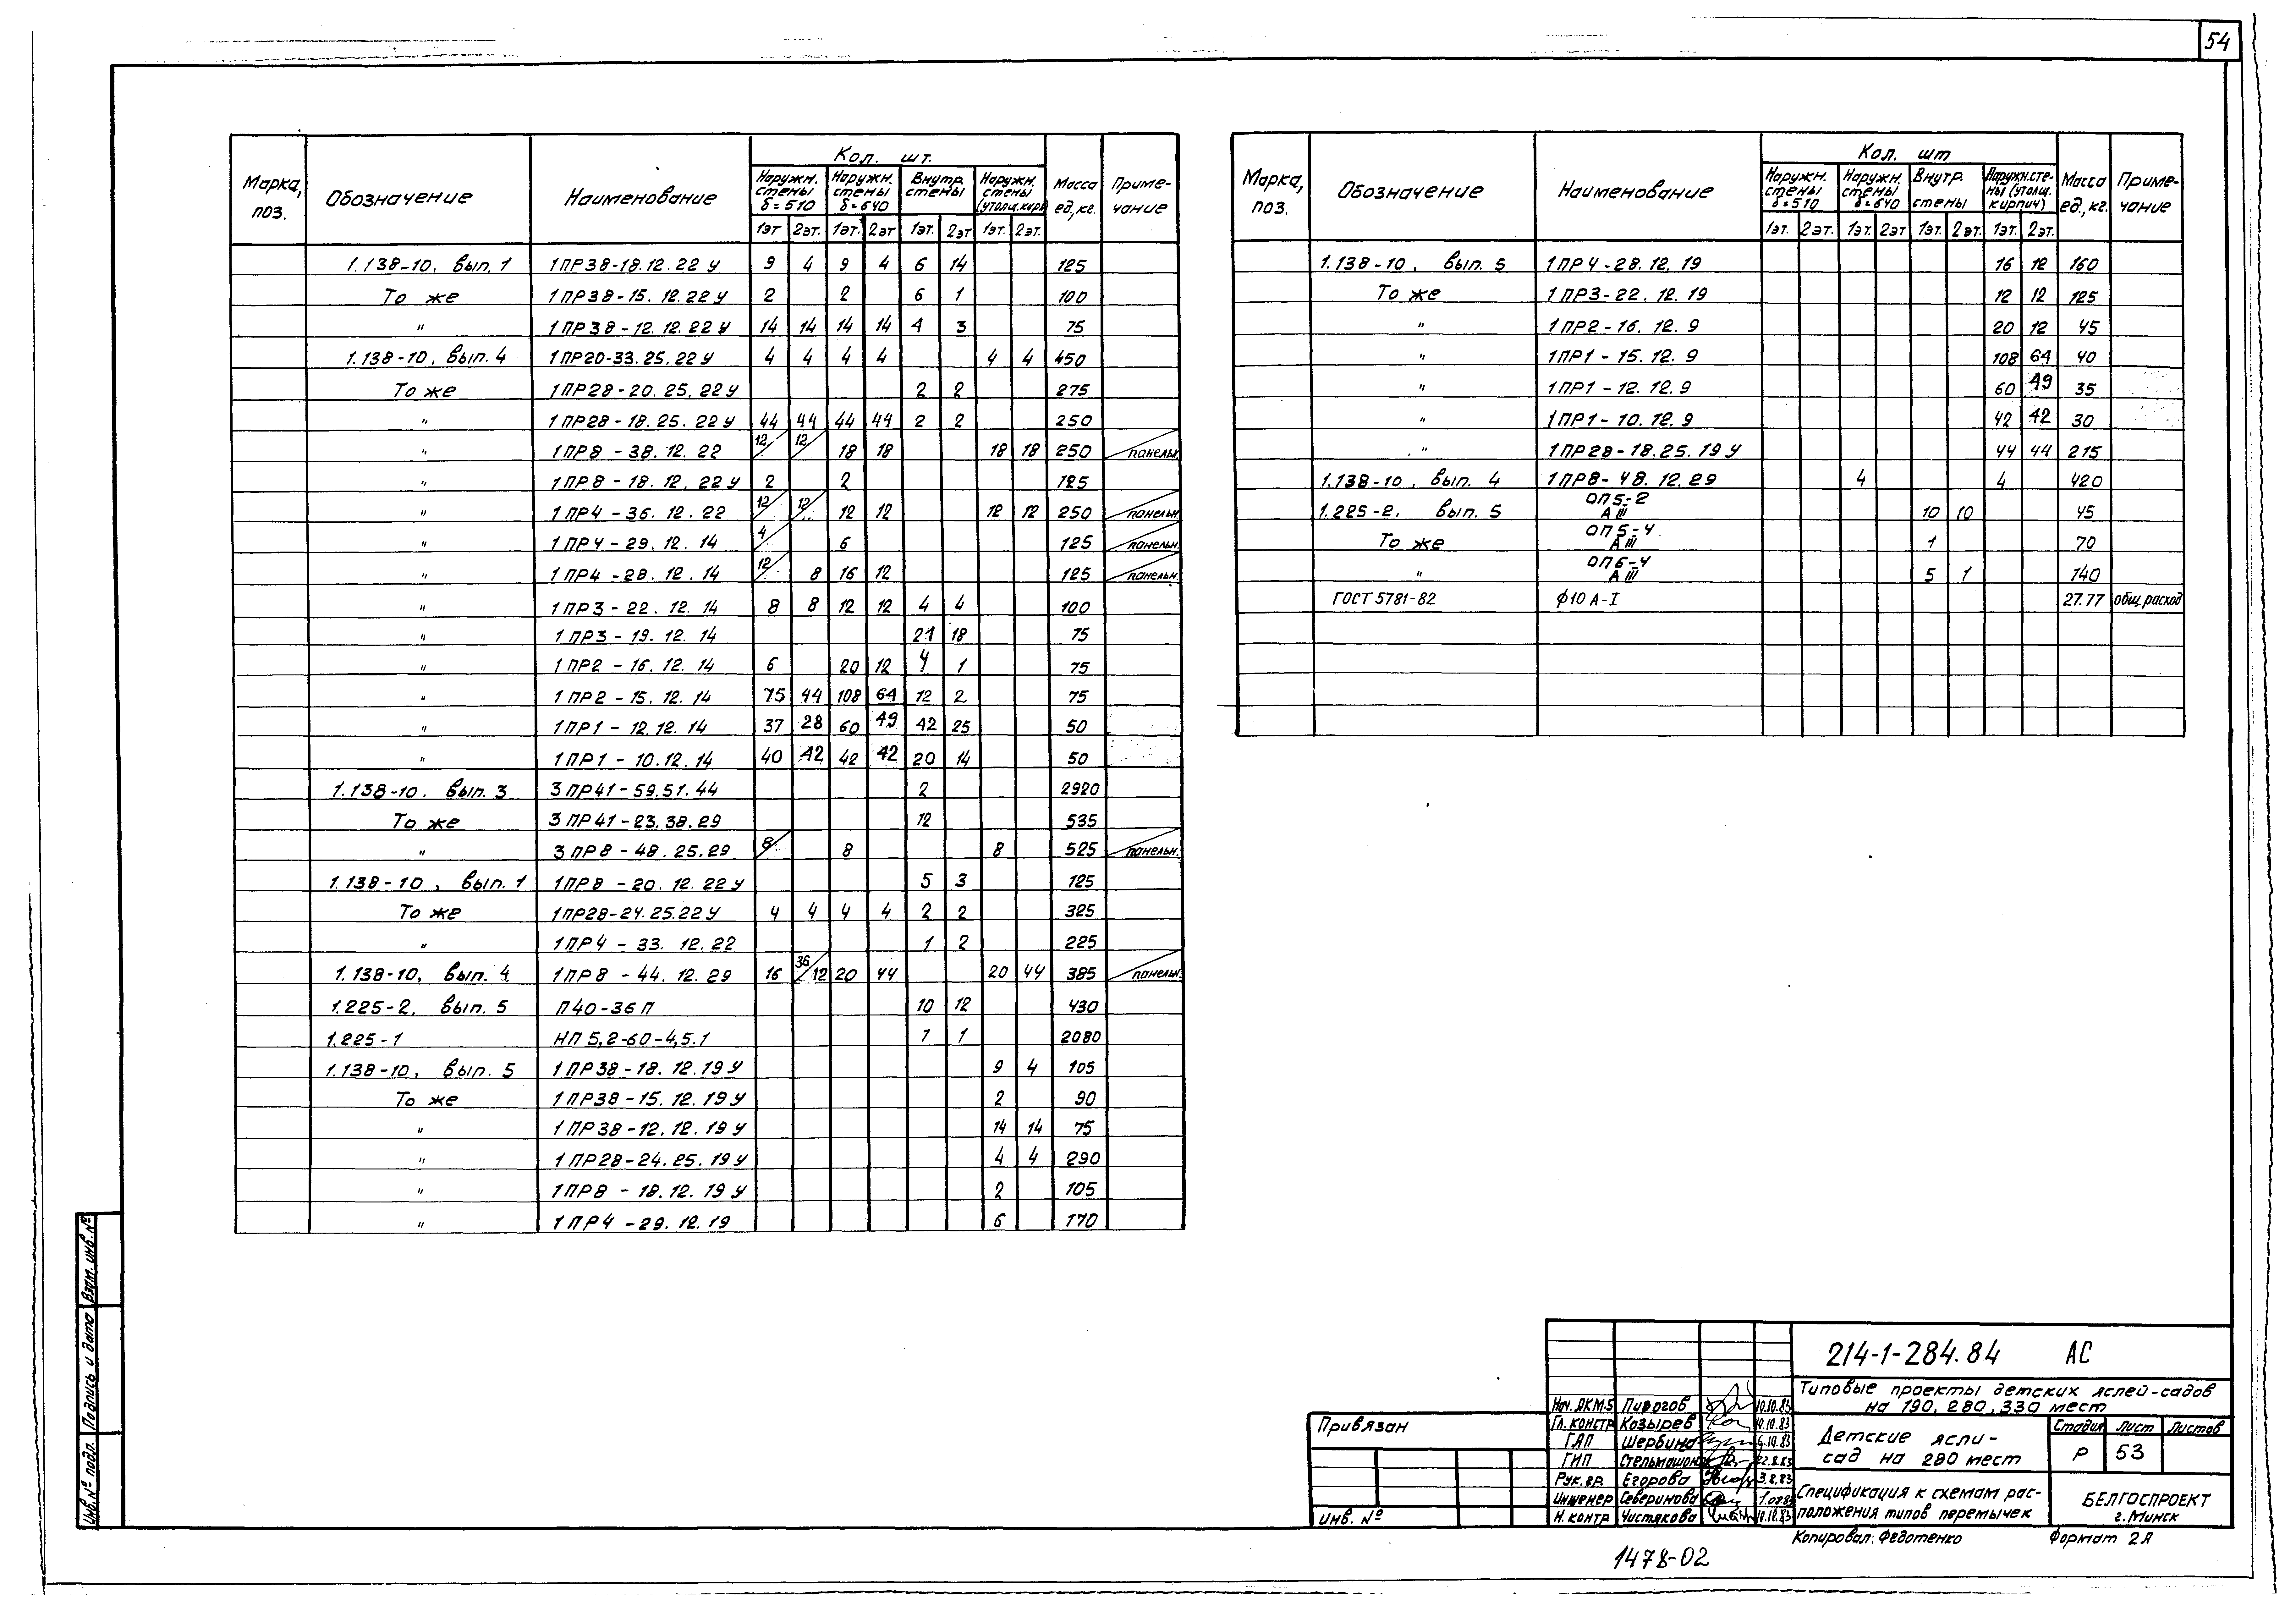 54
Марка, поз. Обозначение Наименование Кол. шт. Масса ед., кг. Примечание
Наружн. стены δ=510 Наружн. стены δ=640 Внутр. стены Наружн. стены (утолщ. кирп)
1эт 2эт. 1эт. 2эт 1эт. 2эт 1эт. 2эт.
1.138-10, вып. 1 1ПР38-18.12.22У 9 4 9 4 6 14 125
То же 1ПР38-15.12.22У 2 2 6 1 100
" 1ПР38-12.12.22У 14 14 14 14 4 3 75
1.138-10, вып. 4 1ПР20-33.25.22У 4 4 4 4 4 4 450
То же 1ПР28-20.25.22У 2 2 275
" 1ПР28-18.25.22У 44 44 44 44 2 2 250
" 1ПР8-38.12.22 12/ 12/ 18 18 18 18 250 панельн.
" 1ПР8-18.12.22У 2 2 125
" 1ПР4-36.12.22 12/ 12/ 12 12 12 12 250 панельн.
" 1ПР4-29.12.14 4/ 6 125 панельн.
" 1ПР4-28.12.14 12/ 8 16 12 125 панельн.
" 1ПР3-22.12.14 8 8 12 12 4 4 100
" 1ПР3-19.12.14 21 18 75
" 1ПР2-16.12.14 6 20 12 4 1 75
" 1ПР2-15.12.14 75 44 108 64 12 2 75
" 1ПР1-12.12.14 37 28 60 49 42 25 50
" 1ПР1-10.12.14 40 42 42 42 20 14 50
1.138-10, вып. 3 3ПР41-59.51.44 2 2920
То же 3ПР41-23.38.29 12 535
" 3ПР8-48.25.29 8/ 8 8 525 панельн.
1.138-10, вып. 1 1ПР8-20.12.22У 5 3 125
То же 1ПР28-24.25.22У 4 4 4 4 2 2 325
" 1ПР4-33.12.22 1 2 225
1.138-10, вып. 4 1ПР8-44.12.29 16 36/12 20 44 20 44 385 панельн.
1.225-2, вып. 5 П40-36П 10 12 430
1.225-1 НП5,2-60-4,5.1 1 1 2080
1.138-10, вып. 5 1ПР38-18.12.19У 9 4 105
То же 1ПР38-15.12.19У 2 90
" 1ПР38-12.12.19У 14 14 75
" 1ПР28-24.25.19У 4 4 290
" 1ПР8-18.12.19У 2 105
" 1ПР4-29.12.19 6 170
Марка, поз. Обозначение Наименование Кол. шт Масса ед., кг. Примечание
Наружн. стены δ=510 Наружн. стены δ=640 Внутр. стены Наружн. стены (утолщ. кирпич)
1эт. 2эт. 1эт. 2эт 1эт. 2эт. 1эт. 2эт.
1.138-10, вып. 5 1ПР4-28.12.19 16 12 160
То же 1ПР3-22.12.19 12 12 125
" 1ПР2-16.12.9 20 12 45
" 1ПР1-15.12.9 108 64 40
" 1ПР1-12.12.9 60 49 35
" 1ПР1-10.12.9 42 42 30
" 1ПР28-18.25.19У 44 44 215
1.138-10, вып. 4 1ПР8-48.12.29 4 4 420
1.225-2, вып. 5 ОП5-2 АIII 10 10 45
То же ОП5-4 АIII 1 70
" ОП6-4 АIII 5 1 140
ГОСТ 5781-82 ф10 А-I 27.77 общ. расход
Взам. инв. №
Подпись и дата
Инв. № подл.
Привязан
Инв. №
Нач. АКМ-5 Пирогов 10.10.83
Гл. констр Козырев 10.10.83
ГАП Шербина
ГИП 22.8.83
Рук. гр. Егорова 3.8.83
Инженер Северинова
Н. контр Чистякова 10.10.83
214-1-284.84 АС
Типовые проекты детских яслей-садов
на 190, 280, 330 мест
Детские ясли-
сад на 280 мест
Стадия Лист Листов
Р 53
Спецификация к схемам рас-
положения типов перемычек
БЕЛГОСПРОЕКТ
г. Минск
Копировал: Федотенко Формат 2А
1478-02